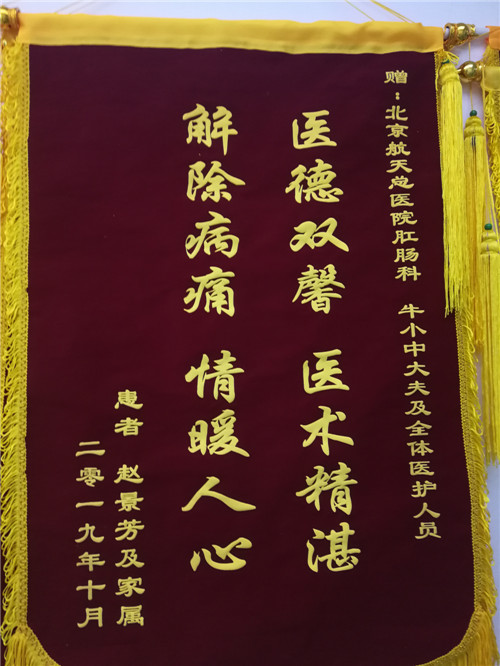 赠：北京航天总医院肛肠科 牛小中大夫及全体医护人员
医德双馨 医术精湛
解除病痛 情暖人心
患者 赵景芳及家属
二零一九年十月